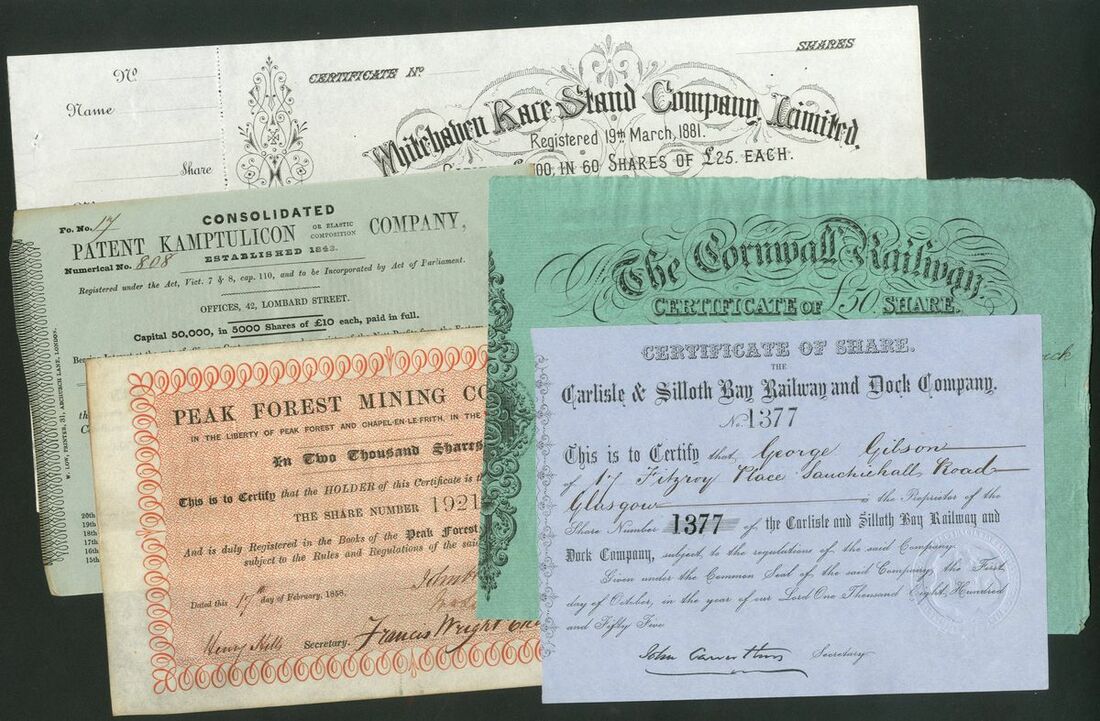 No.
Name
Share
CERTIFICATE No.
SHARES
Whitehaven Race Stand Company, Limited.
Registered 19th March, 1881.
00, IN 60 SHARES OF £25. EACH.
Fo. No. 17
CONSOLIDATED
PATENT KAMPTULICON OR ELASTIC COMPOSITION COMPANY,
ESTABLISHED 1843.
Numerical No. 808
Registered under the Act, Vict. 7 & 8, cap. 110, and to be Incorporated by Act of Parliament.
OFFICES, 42, LOMBARD STREET.
Capital 50,000, in 5000 Shares of £10 each, paid in full.
W. LOW, PRINTER, 31, ABCHURCH LANE, LONDON.
20th
19th
18th
17th
16th
15th
PEAK FOREST MINING CO
IN THE LIBERTY OF PEAK FOREST AND CHAPEL-EN-LE-FRITH, IN THE
In Two Thousand Shares
This is to Certify that the HOLDER of this Certificate is t
THE SHARE NUMBER 1921
And is duly Registered in the Books of the Peak Forest
subject to the Rules and Regulations of the said
Dated this 17th day of February, 1858.
Secretary. Francis Wright
The Cornwall Railway,
CERTIFICATE OF £50 SHARE.
CERTIFICATE OF SHARE.
THE
Carlisle & Silloth Bay Railway and Dock Company.
No. 1377
This is to Certify that George Gibson
of 17 Fitzroy Place Sauchiehall Road
Glasgow is the Proprietor of the
Share Number 1377 of the Carlisle and Silloth Bay Railway and
Dock Company, subject to the regulations of the said Company.
Given under the Common Seal of the said Company, the First
day of October, in the year of our Lord One Thousand Eight Hundred
and Fifty Five
Secretary